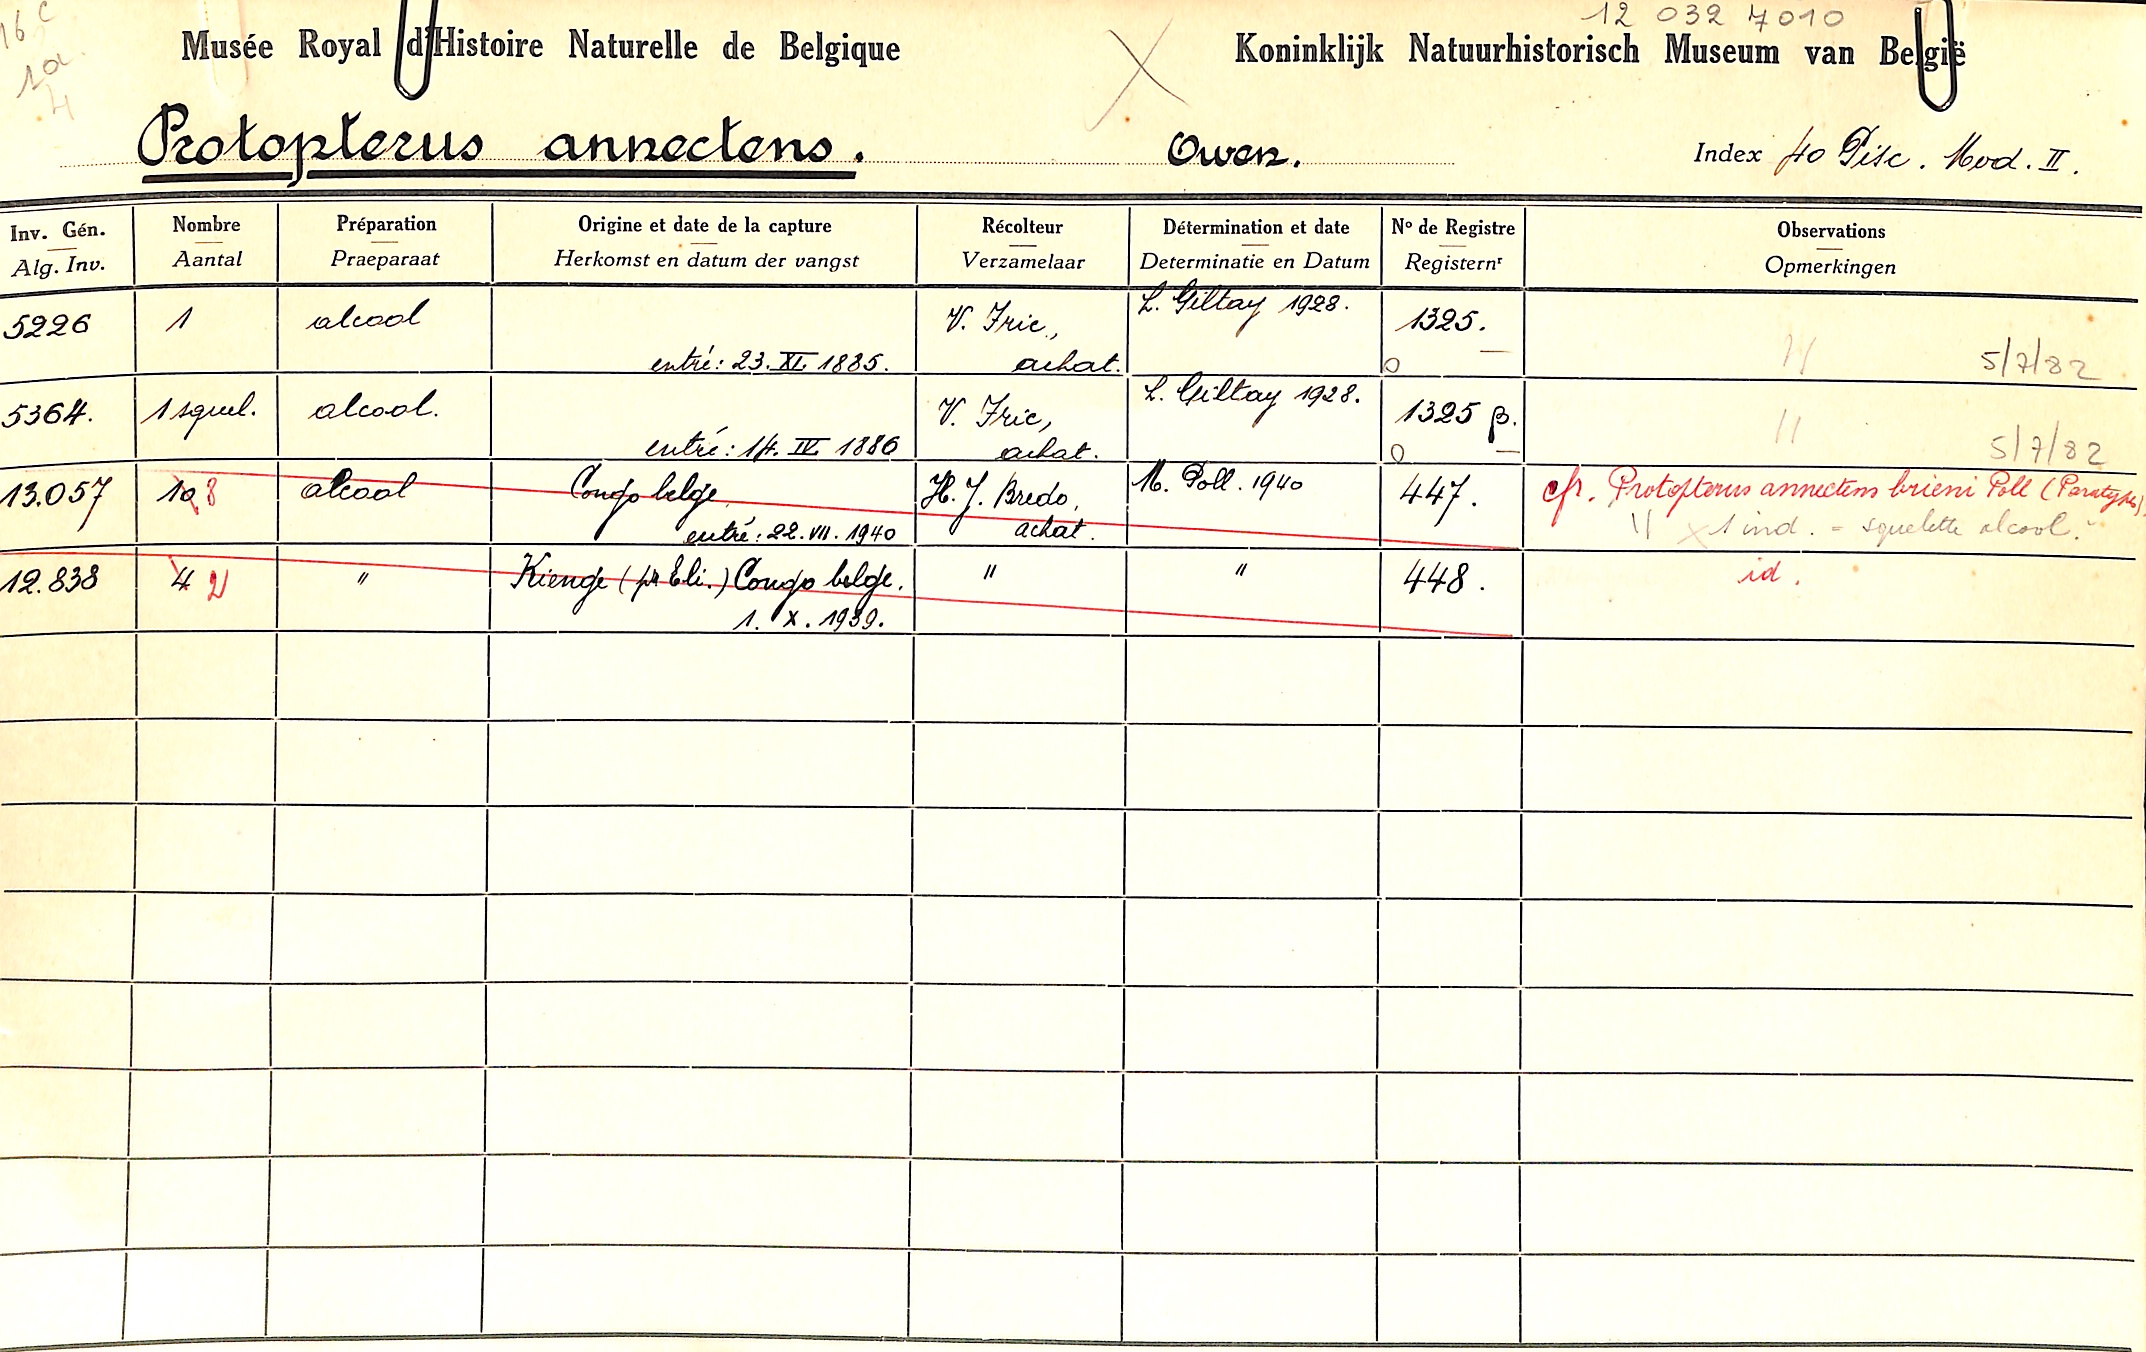 16 c
12 032 7010
1a.
4
Musée Royal d'Histoire Naturelle de Belgique
Koninklijk Natuurhistorisch Museum van België
Protopterus annectens.
Owen.
Index 40 Pisc. Mod. II.
Inv. Gén. Nombre Préparation Origine et date de la capture Récolteur Détermination et date No de Registre Observations
Alg. Inv. Aantal Praeparaat Herkomst en datum der vangst Verzamelaar Determinatie en Datum Registernr Opmerkingen
5226 1 alcool V. Fric, L. Giltay 1928. 1325.
entré: 23. XI. 1885. achat. 0 5/7/82
5364. 1 squel. alcool. V. Fric, L. Giltay 1928. 1325 β.
entré: 14. IV. 1886 achat. 0 5/7/82
13.057 10 8 alcool Congo belge H. J. Bredo, M. Poll. 1940 447. cfr. Protopterus annectens brieni Poll (Paratypes)
entré: 22. VII. 1940 achat. × 1 ind. = squelette alcool.
12.838 4 2 " Kienge (pr Eli.) Congo belge. " " 448. id.
1. X. 1939.